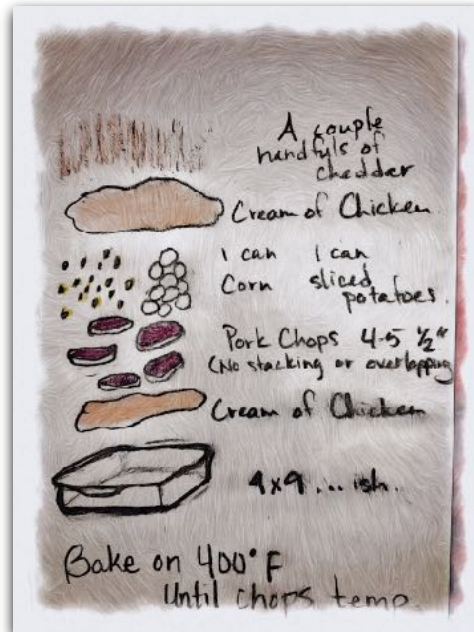 A couple
handfuls of
chedder
Cream of Chicken
1 can 1 can
Corn sliced
potatoes.
Pork Chops 4-5 1/2"
(No stacking or overlapping
Cream of Chicken
9x9... ish.
Bake on 400°F
Until chops temp.